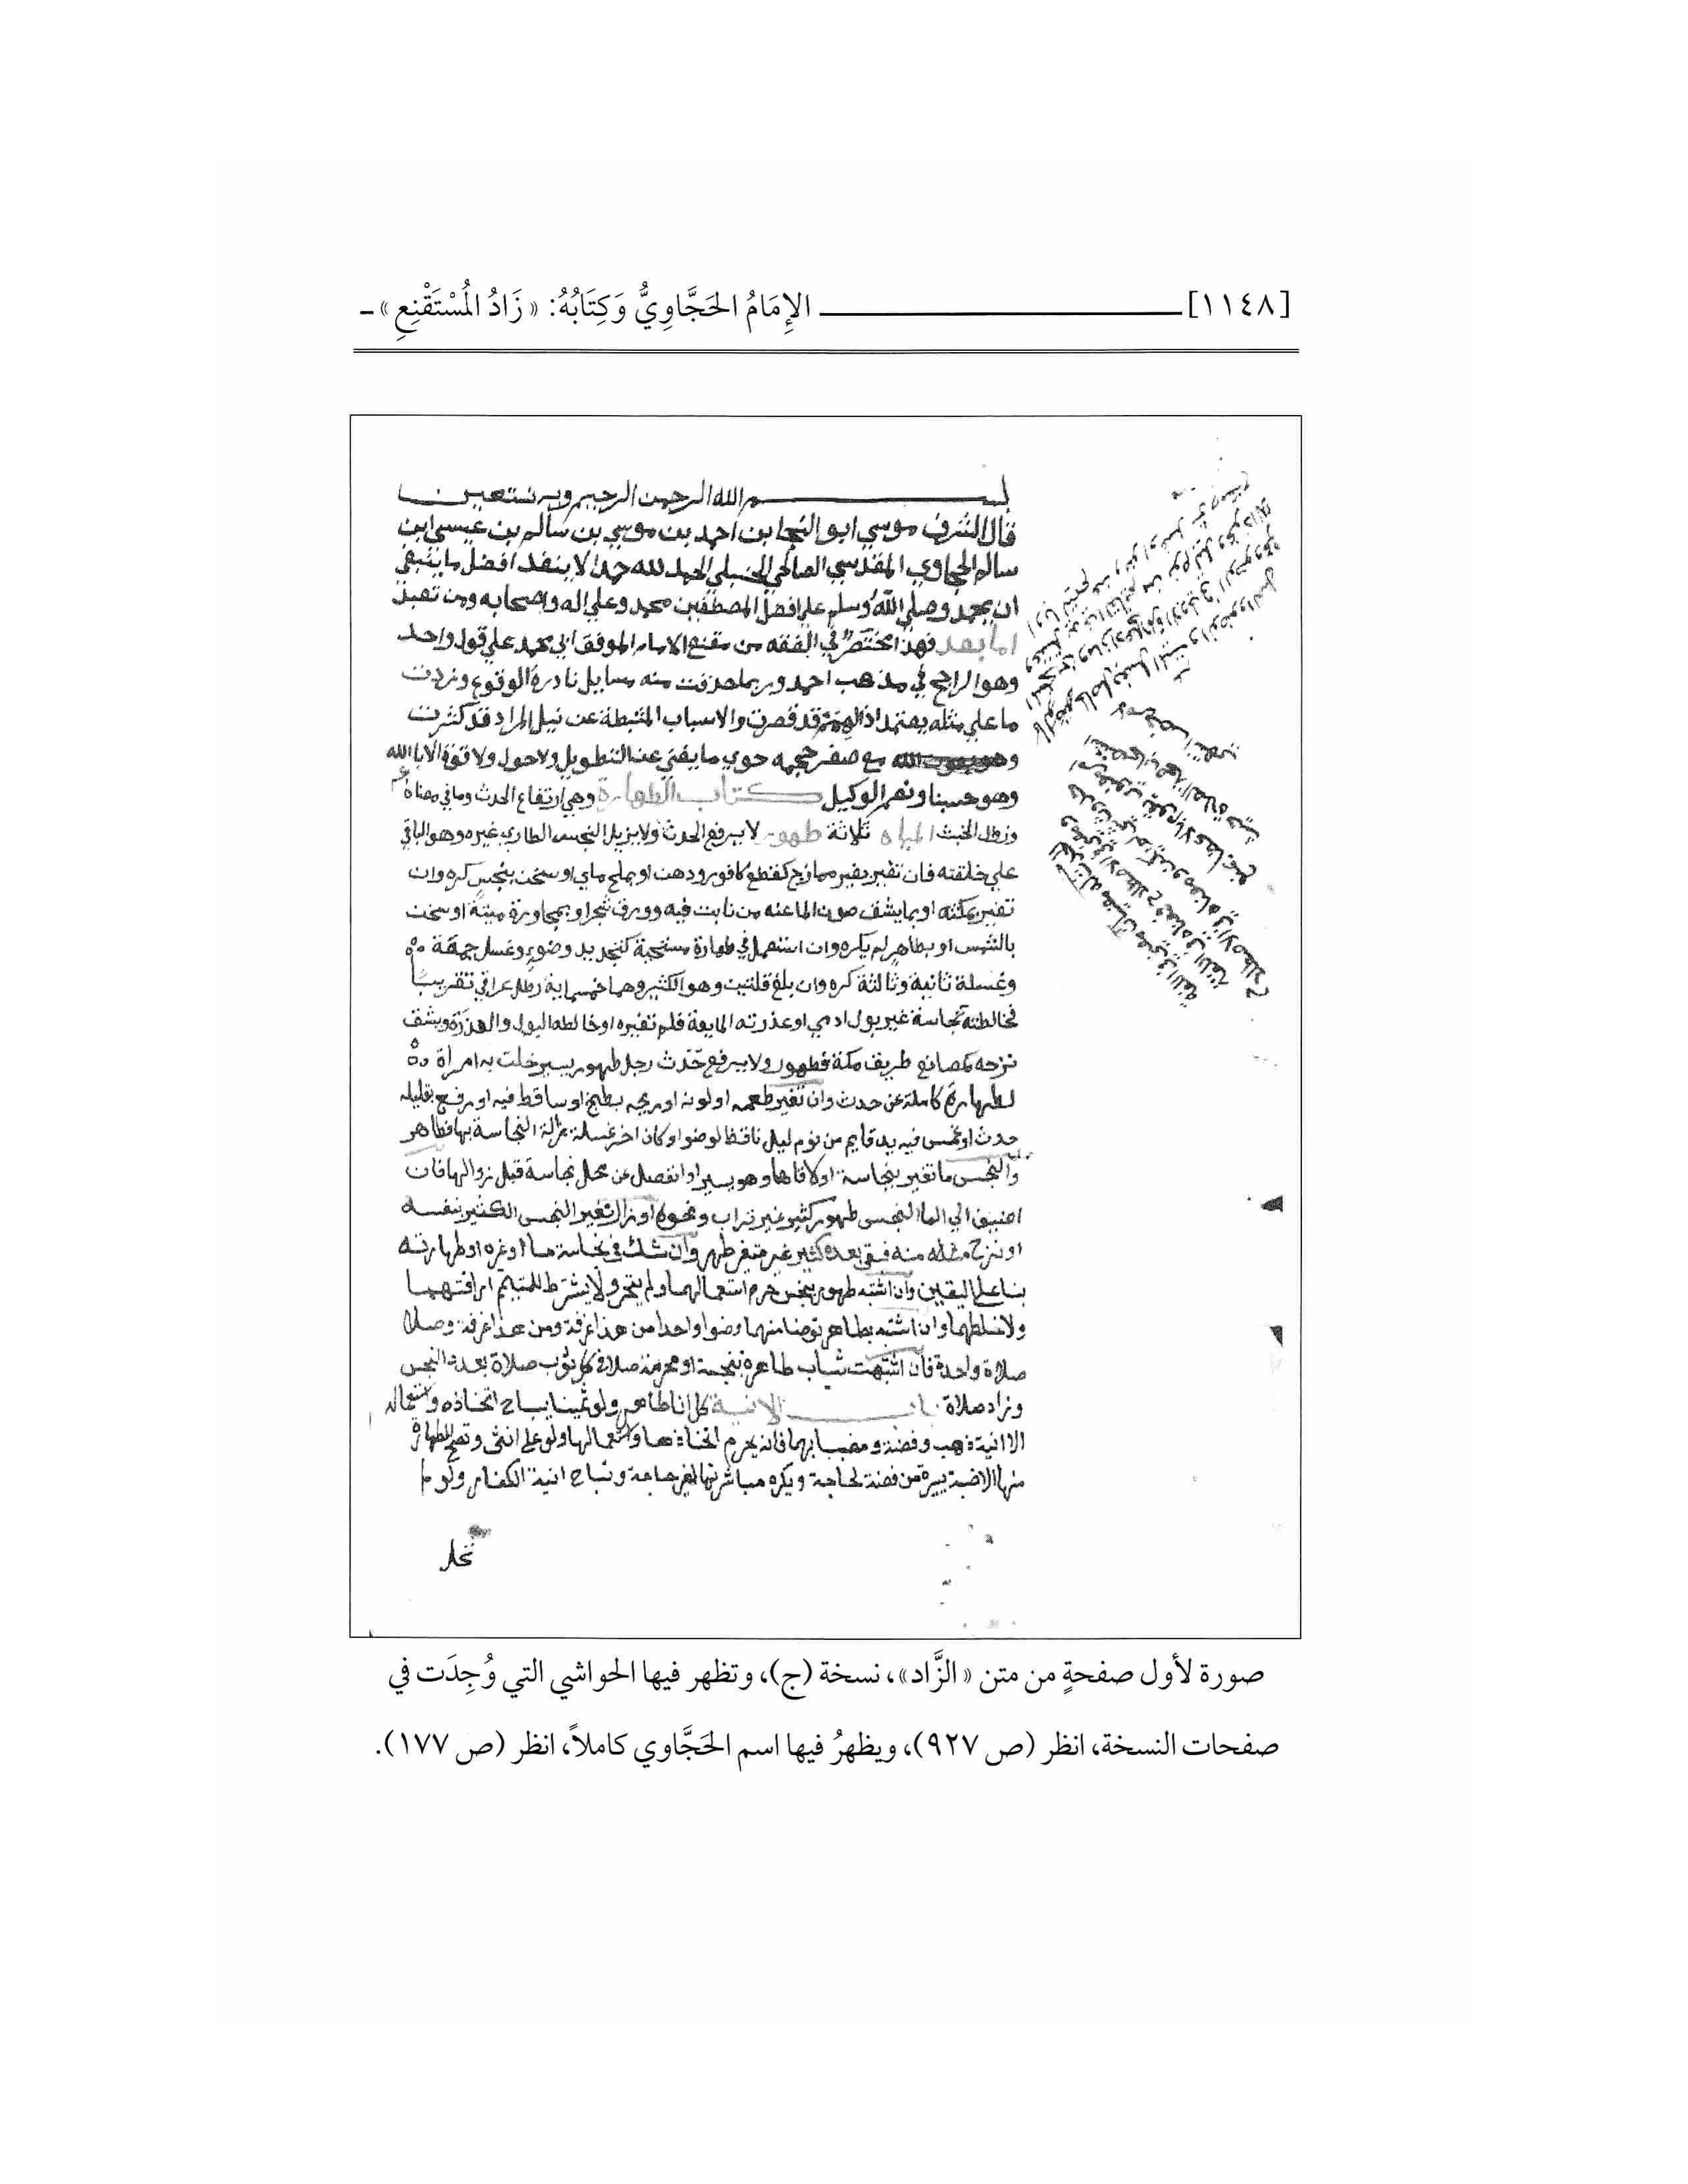 [١١٤٨] الإِمَامُ الحَجَّاوِيُّ وَكِتَابُهُ: «زَادُ المُسْتَقْنِعِ»
بســم الله الرحمن الرحيم وبه نستعين
قال الشرف موسي ابو النجا بن احمد بن موسي بن سالم بن عيسى ابن
سالم الحجاوي المقدسي الصالحي الحنبلي الحمد لله حمدا لا ينفد افضل ما ينبغي
ان يحمد وصلى الله وسلم علي افضل المصطفين محمد وعلي اله واصحابه ومن تعبد
اما بعد فهذا مختصر في الفقه من مقنع الامام الموفق ابي محمد علي قول واحد
وهو الراجح في مذهب احمد وربما حذفت منه مسايل نادرة الوقوع وزدت
ما علي مثله يعتمد اذ الهمم قد قصرت والاسباب المثبطة عن نيل المراد قد كثرت
مع صغر حجمه حوي ما يغني عن التطويل ولا حول ولا قوة الا بالله
وهو حسبنا ونعم الوكيل كتاب الطهارة وهي ارتفاع الحدث وما في معناه
وزوال الخبث المياه ثلاثة طهور لا يرفع الحدث ولا يزيل النجس الطاري غيره وهو الباقي
علي خلقته فان تغير بغير ممازج كقطع كافور ودهن او بملح ماي او سخن بنجس كره وان
تغير بمكثه او بما يشق صون الما عنه من نابت فيه وورق شجر او بمجاورة ميتة او سخن
بالشمس او بطاهر لم يكره وان استعمل في طهارة مستحبة كتجديد وضوء وغسل جمعة
وغسلة ثانية وثالثة كره وان بلغ قلتين وهو الكثير وهما خمسماية رطل عراقي تقريبا
فخالطته نجاسة غير بول ادمي او عذرته المايعة فلم تغيره او خالطه البول والعذرة ويشق
نزحه كمصانع طريق مكة فطهور ولا يرفع حدث رجل طهور يسير خلت به امراة
لطهارة كاملة عن حدث وان تغير طعمه او لونه او ريحه بطبخ او ساقط فيه او رفع بقليله
حدث او غمس فيه يد قايم من نوم ليل ناقض لوضو او كان اخر غسلة زالة النجاسة بها فطاهر
والنجس ما تغير بنجاسة او لاقاها وهو يسير او انفصل عن محل نجاسة قبل زوالها فان
اضيف الي الما النجس طهور كثير غير تراب ونحوه او زال تغير النجس الكثير بنفسه
او نزح منه فبقي بعده كثير غير متغير طهر وان شك في نجاسة ما او غيره او طهارته
بنا على اليقين وان اشتبه طهور بنجس حرم استعمالهما ولم يتحر ولا يشترط للتيمم اراقتهما
ولا خلطهما وان اشتبه بطاهر توضا منهما وضوا واحدا من هذا غرفة ومن هذا غرفة وصلا
صلاة واحدة فان اشتبهت ثياب طاهرة بنجسة او محرمة صلا في كل ثوب صلاة بعدد النجس
وزاد صلاة باب الانية كل انا طاهر ولو ثمينا يباح اتخاذه واستعماله
الا انية ذهب وفضة ومضببا بهما فانه يحرم اتخاذها واستعمالها ولو على انثى وتصح الطهارة
منها الا ضبة يسيرة من فضة لحاجة ويكره مباشرتها لغير حاجة وتباح انية الكفار ولو لم
تحل
صورة لأول صفحةٍ من متن «الزَّاد»، نسخة (ج)، وتظهر فيها الحواشي التي وُجِدَت في
صفحات النسخة، انظر (ص ٩٢٧)، ويظهرُ فيها اسم الحَجَّاوي كاملاً، انظر (ص ١٧٧).